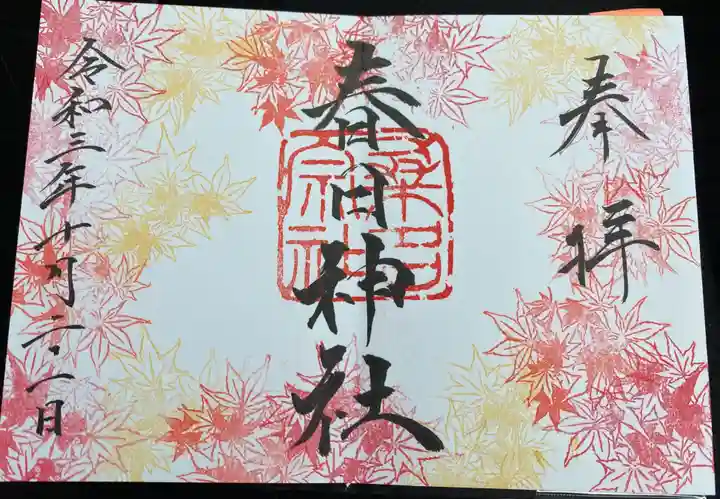 奉拝
春日神社
令和三年十月二十一日